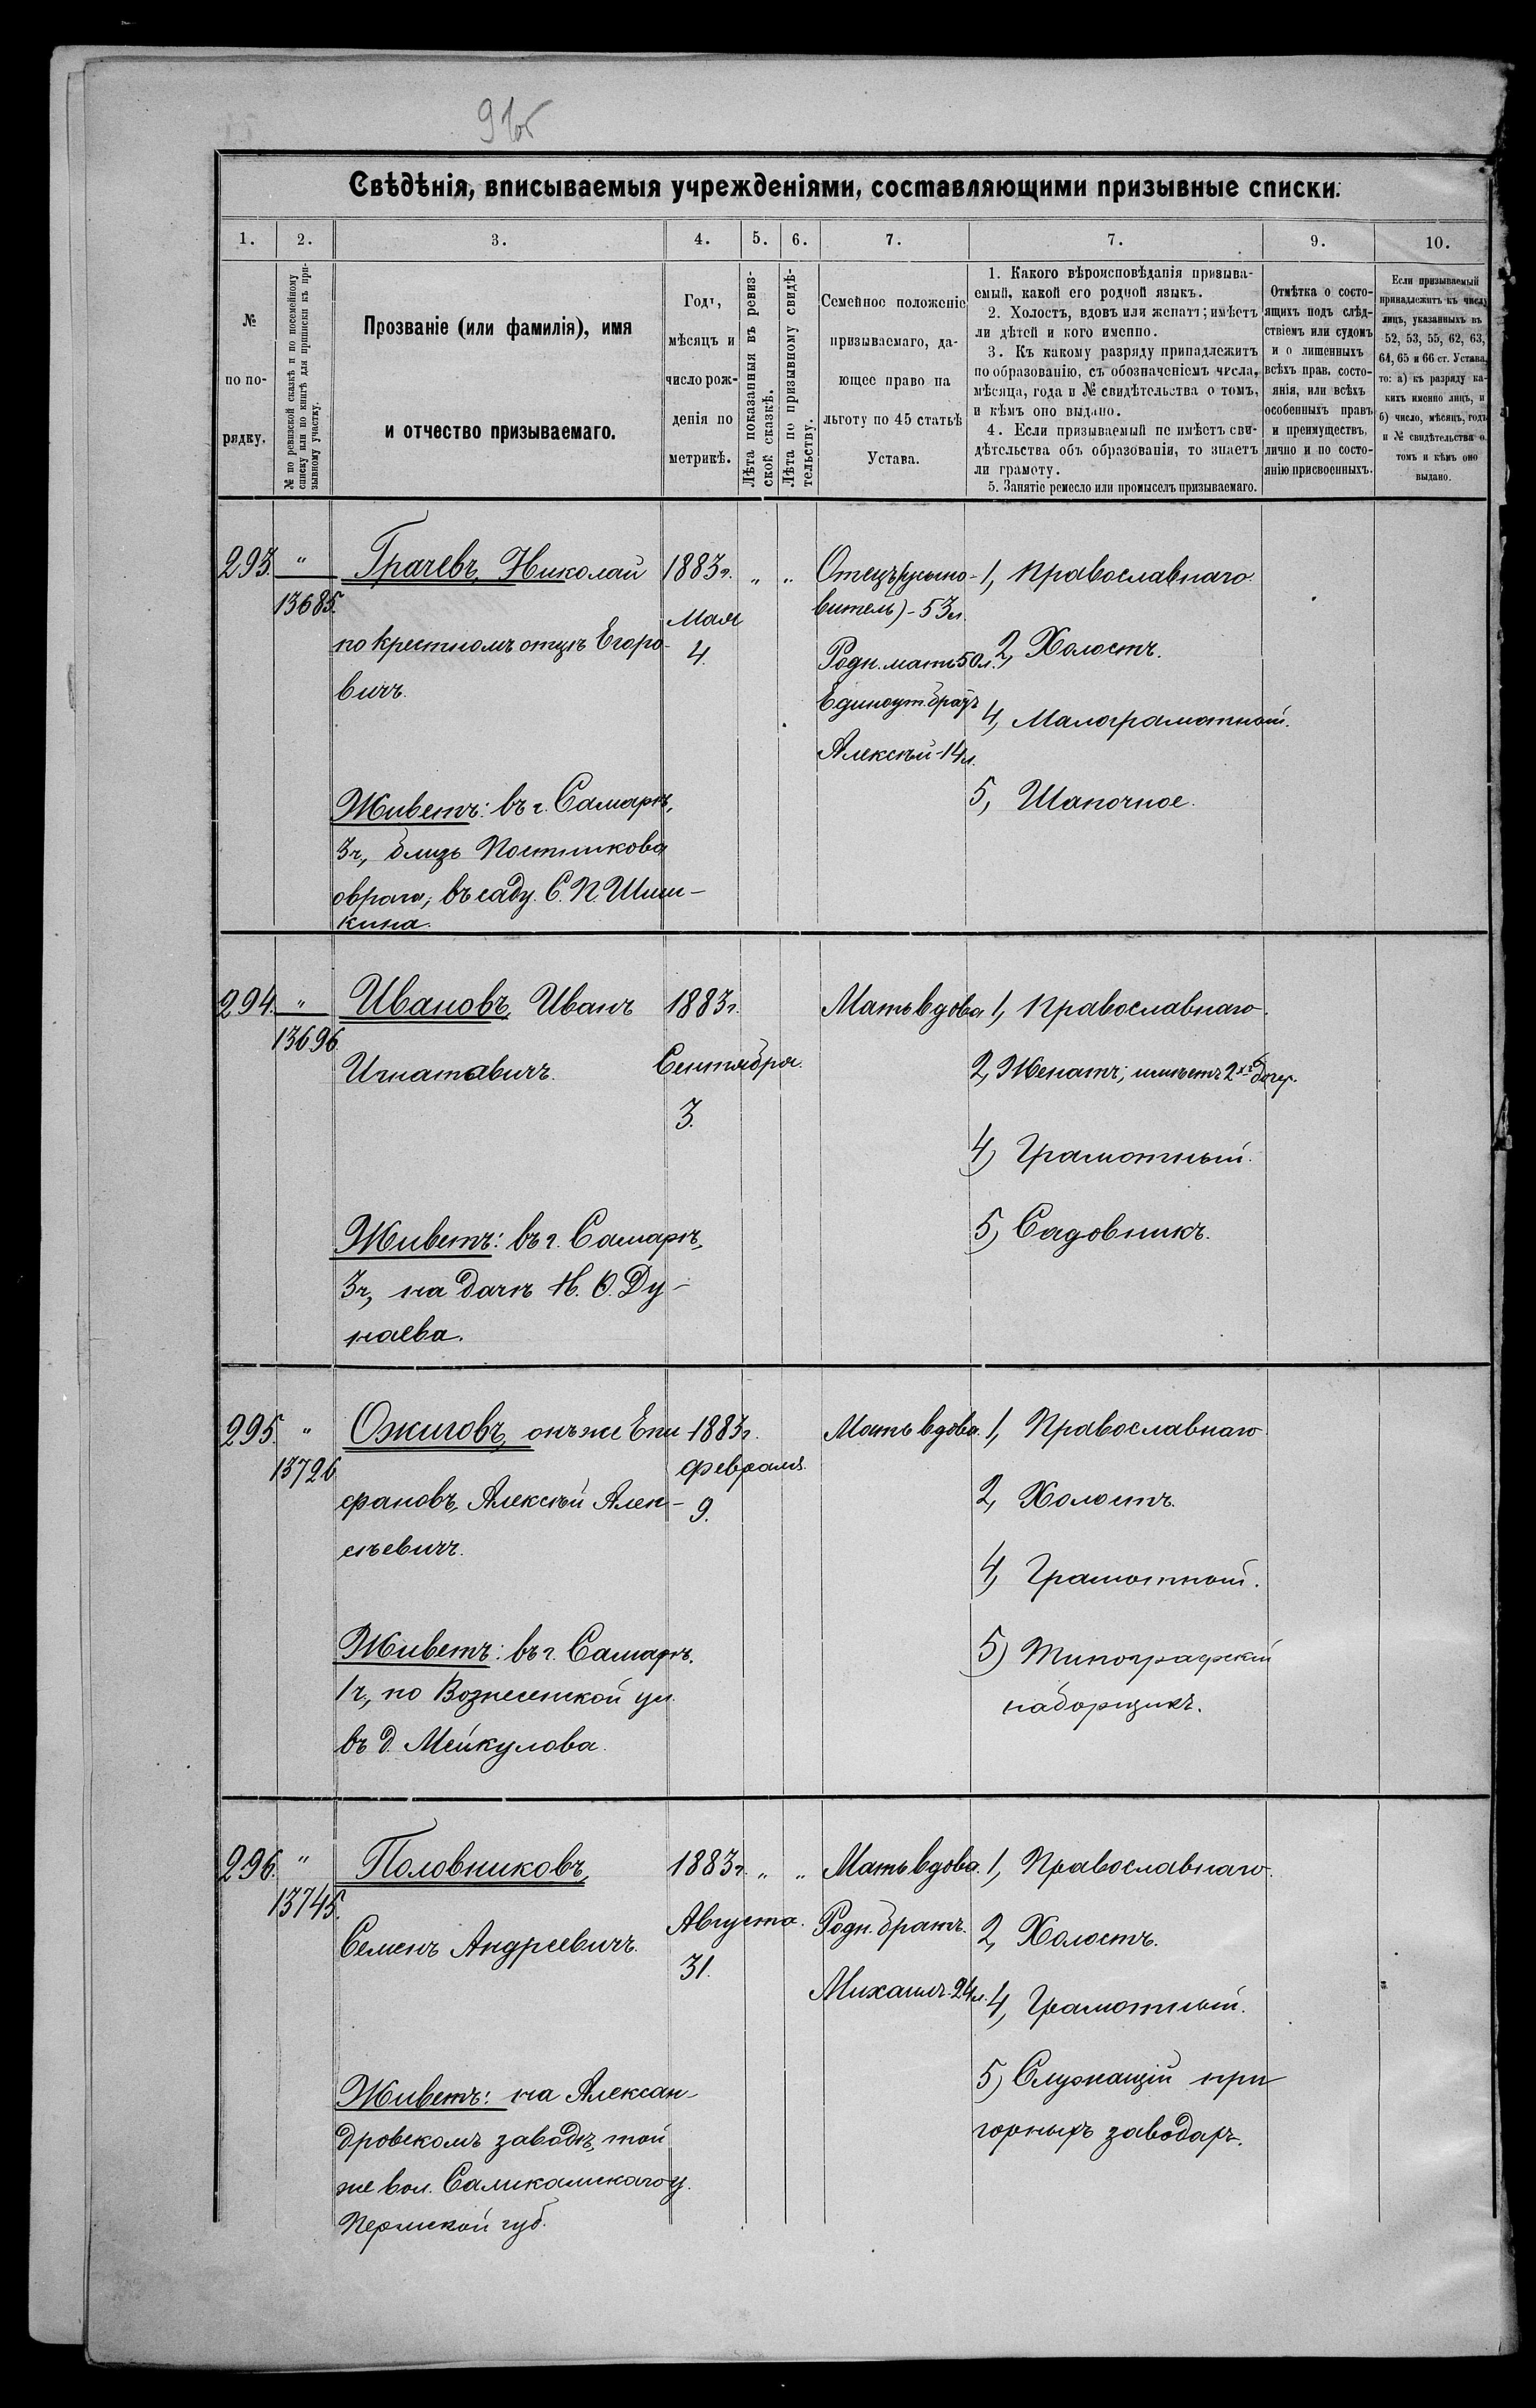 91об
Свѣдѣнія, вписываемыя учрежденіями, составляющими призывные списки.
1. 2. 3. 4. 5. 6. 7. 7. 9. 10.
№
по по-
рядку.
№ по ревизской сказкѣ и по посемейному
списку или по книгѣ для приписки къ при-
зывному участку.
Прозваніе (или фамилія), имя
и отчество призываемаго.
Годъ,
мѣсяцъ и
число рож-
денія по
метрикѣ.
Лѣта показанныя въ ревиз-
ской сказкѣ.
Лѣта по призывному свидѣ-
тельству.
Семейное положеніе
призываемаго, да-
ющее право на
льготу по 45 статьѣ
Устава.
1. Какого вѣроисповѣданія призыва-
емый, какой его родной языкъ.
2. Холостъ, вдовъ или женатъ; имѣетъ
ли дѣтей и кого именно.
3. Къ какому разряду принадлежитъ
по образованію, съ обозначеніемъ числа,
мѣсяца, года и № свидѣтельства о томъ,
и кѣмъ оно выдано.
4. Если призываемый не имѣетъ сви-
дѣтельства объ образованіи, то знаетъ
ли грамоту.
5. Занятіе ремесло или промыселъ призываемаго.
Отмѣтка о состо-
ящихъ подъ слѣд-
ствіемъ или судомъ
и о лишенныхъ
всѣхъ прав, состо-
янія, или всѣхъ
особенныхъ правъ
и преимуществъ,
лично и по состо-
янію присвоенныхъ.
Если призываемый
принадлежитъ къ числу
лицъ, указанныхъ въ
52, 53, 55, 62, 63,
64, 65 и 66 ст. Устава,
то: а) къ разряду ка-
кихъ именно лицъ, и
б) число, мѣсяцъ, годъ
и № свидѣтельства о
томъ и кѣмъ оно
выдано.
293. "
13685.
Грачевъ, Николай
по крестномъ отцѣ Егоро-
вичъ.
Живетъ: въ г. Самарѣ,
3ч., близъ Постникова
оврага, въ саду. С. П. Шиш-
кина.
1883г.
Мая
4.
" "
Отецъ(усыно-
витель)-53л.
Родн. мать 50л.
Единоут. братъ
Алексѣй-14л.
1, Православнаго.
2, Холостъ.
4, Малограмотный.
5, Шапочное.
294. "
13696.
Ивановъ, Иванъ
Игнатавичъ.
Живетъ: въ г. Самарѣ,
3ч, на дачѣ Н. Ѳ. Ду-
наева.
1883г.
Сентября.
3.
Мать вдова
1, Православнаго.
2, Женатъ; имѣетъ 2хъ дочер.
4) Грамотный.
5) Садовникъ.
295. "
13726
Ожиговъ, онъ же Епи-
фановъ, Алексѣй Алек-
сѣевичъ.
Живетъ: въ г. Самарѣ.
1ч, по Вознесенской ул.
въ д. Мейкулова.
1883г.
Февраля.
9.
Мать вдова.
1, Православнаго.
2, Холостъ.
4, Грамотный.
5) Типографскій
наборщикъ.
296. "
13745.
Половниковъ,
Семенъ Андреевичъ.
Живетъ: на Алексан-
дровскомъ заводѣ, той
же вол. Саликамскаго у.
Пермской губ.
1883г.
Августа.
31.
" "
Мать вдова.
Родн. братъ.
Михаилъ-24л.
1, Православнаго.
2, Холостъ.
4, Грамотный.
5) Служащій при
горныхъ заводахъ.